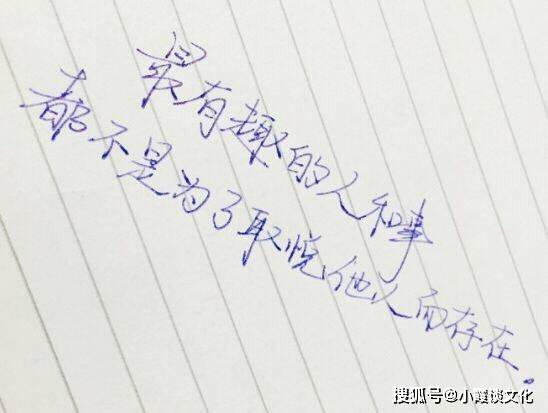 最有趣的人和事
都不是为了取悦他人而存在。
搜狐号@小霞谈文化